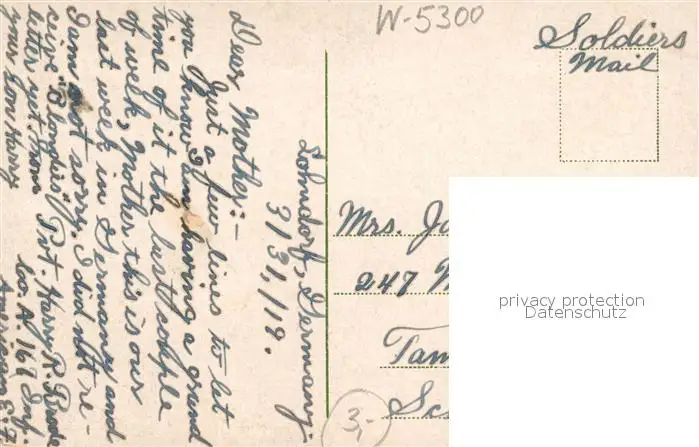 W-5300
Soldiers
Mail
Lohndorf, Germany.
3/31/19.
Dear Mother:-
Just a few lines to let
you know I am having a grand
time of it the last couple
of week, Mother this is our
last week in Germany and
I am not sorry. I did not re-
ceive "Blondies"
letter yet. From
your son Harry
Pvt. Harry R.
Co. A. 167 Inf.
American E. F.
Mrs. Jo
247
Tam
3,-
privacy protection
Datenschutz